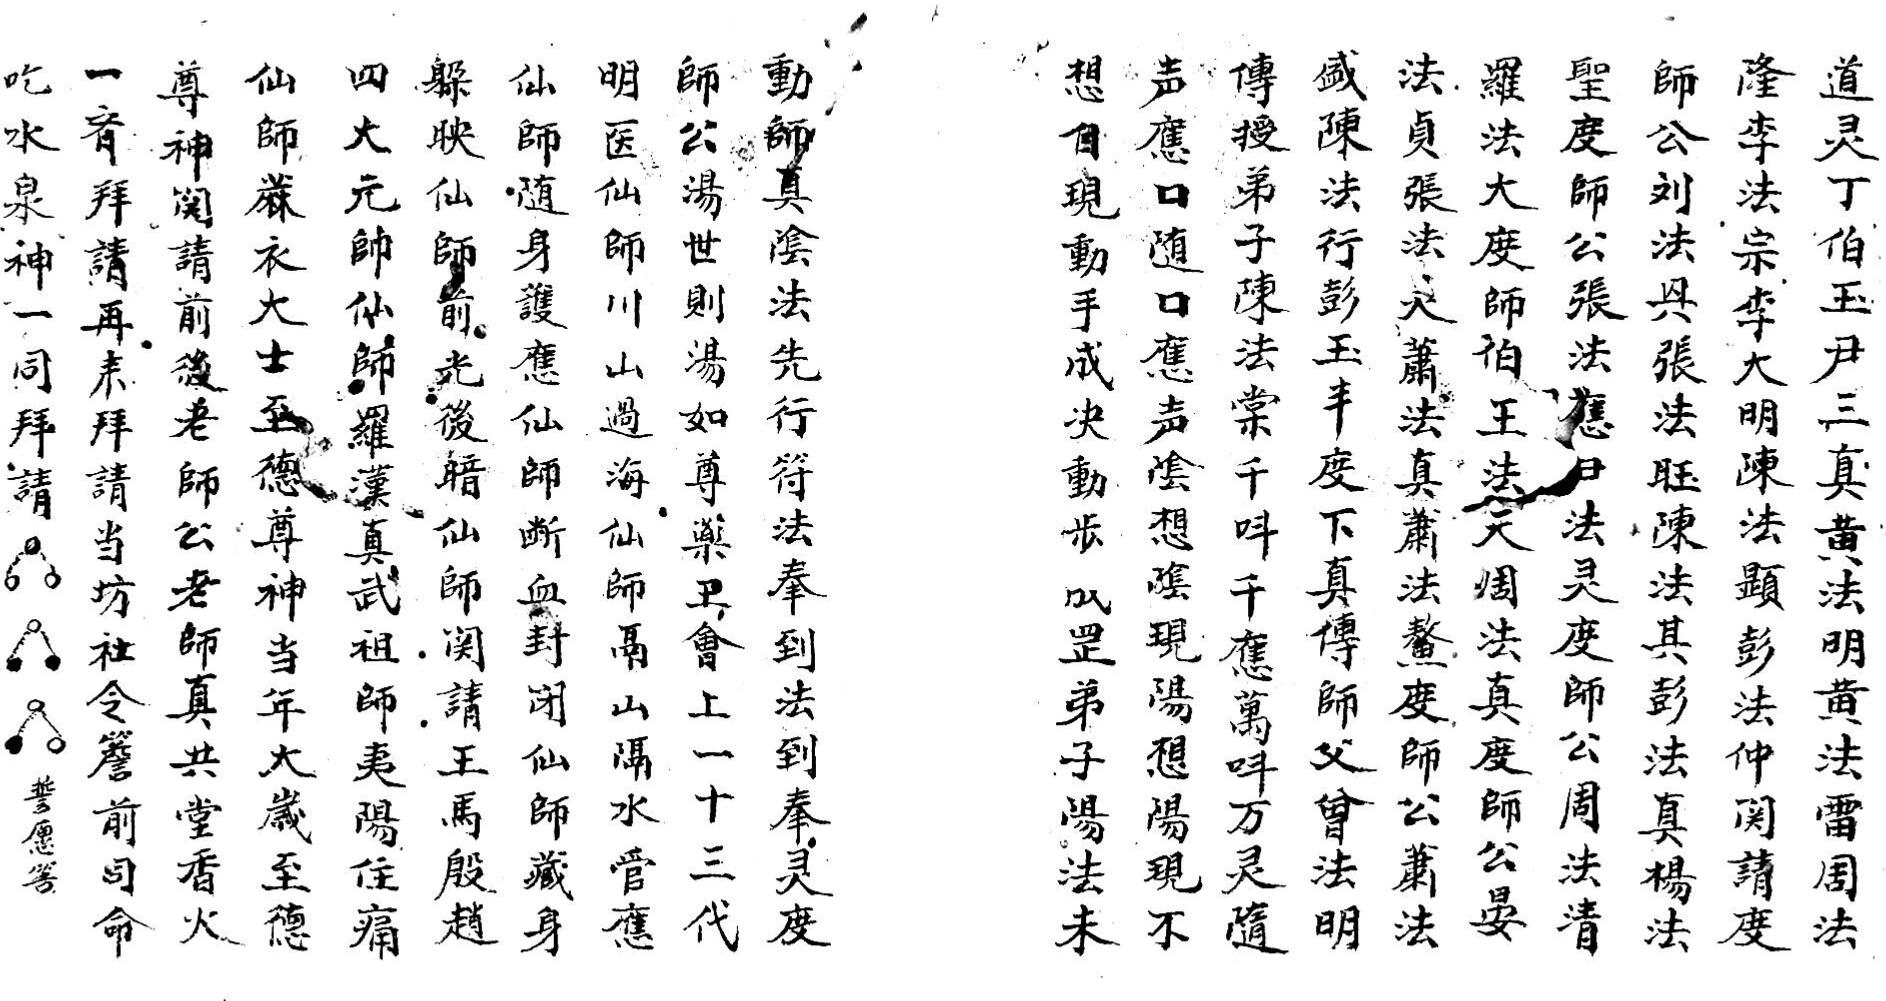 道灵丁伯玉尹三真黄法明黄法雷周法
隆李法宗李大明陳法顕彭法仲関請度
師公刘法具張法旺陳法其彭法真楊法
聖度師公張法應日法灵度師公周法清
羅法大度師伯王法天周法真度師公晏
法貞張法大蕭法真蕭法鰲度師公蕭法
盛陳法行彭玉丰度下真傳師父曾法明
傳授弟子陳法棠千呌千應萬呌万灵隨
声應口随口應声陰想陰現陽想陽現不
想自現動手成决動步成罡弟子陽法未
動師真陰法先行符法奉到法到奉灵度
師公湯世則湯如尊藥王會上一十三代
明医仙師川山過海仙師鬲山隔水管應
仙師随身護應仙師断血封闭仙師藏身
躲映仙師前光後暗仙師関請王馬殷趙
四大元帥仙師羅漢真武祖師夷陽住痛
仙師蔴衣大士至德尊神当年大歲至德
尊神関請前後老師公老師真共堂香火
一斉拜請再来拜請当坊社令簷前司命
吃水泉神一同拜請
誓愿筶